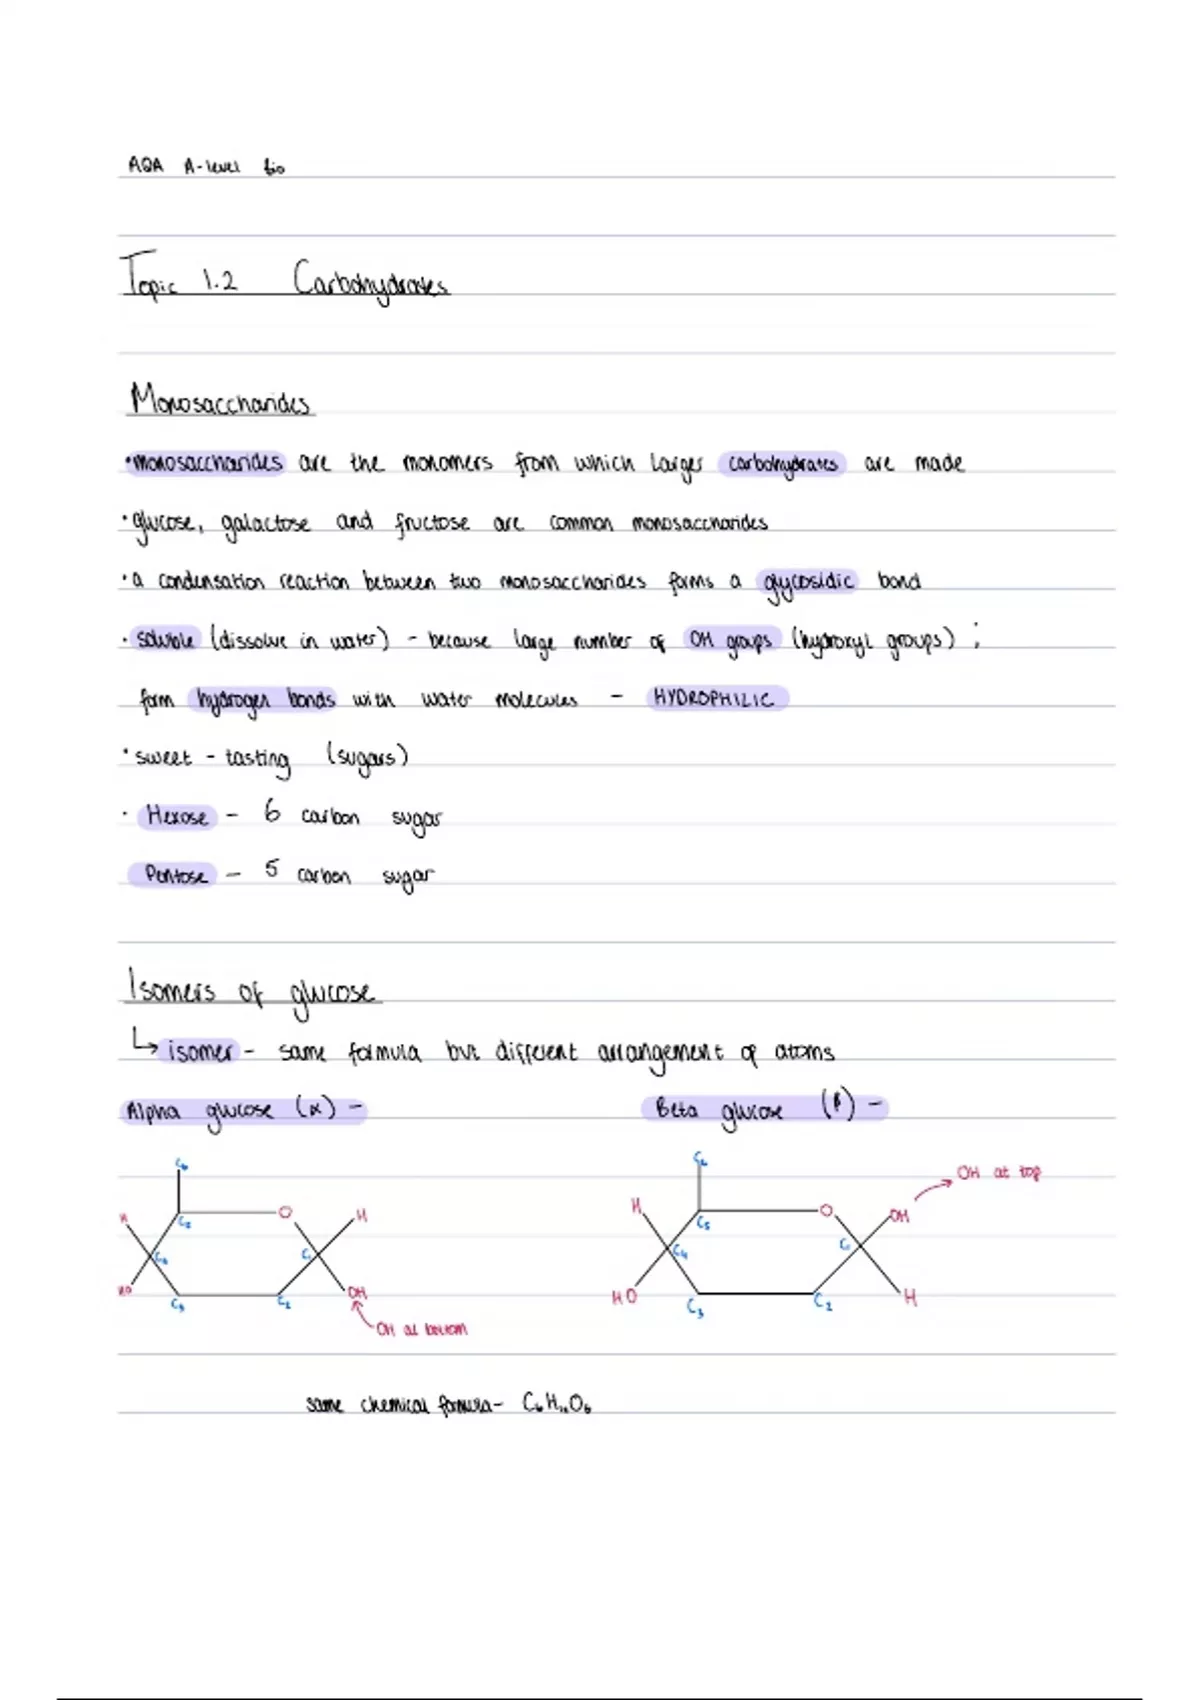 AQA A-level bio
Topic 1.2 Carbohydrates
Monosaccharides
•monosaccharides are the monomers from which larger carbohydrates are made
•glucose, galactose and fructose are common monosaccharides
•a condensation reaction between two monosaccharides forms a glycosidic bond
•soluble (dissolve in water) - because large number of OH groups (hydroxyl groups) ;
form hydrogen bonds with water molecules - HYDROPHILIC
•sweet-tasting (sugars)
•Hexose - 6 carbon sugar
Pentose - 5 carbon sugar
Isomers of glucose
↳ isomer - same formula but different arrangement of atoms
Alpha glucose (α) - Beta glucose (β) -
C₆ C₆ OH at top
H C₅ O H H C₅ O OH
C₄ C₁ C₄ C₁
HO C₃ C₂ OH HO C₃ C₂ H
OH at bottom
same chemical formula - C₆H₁₂O₆